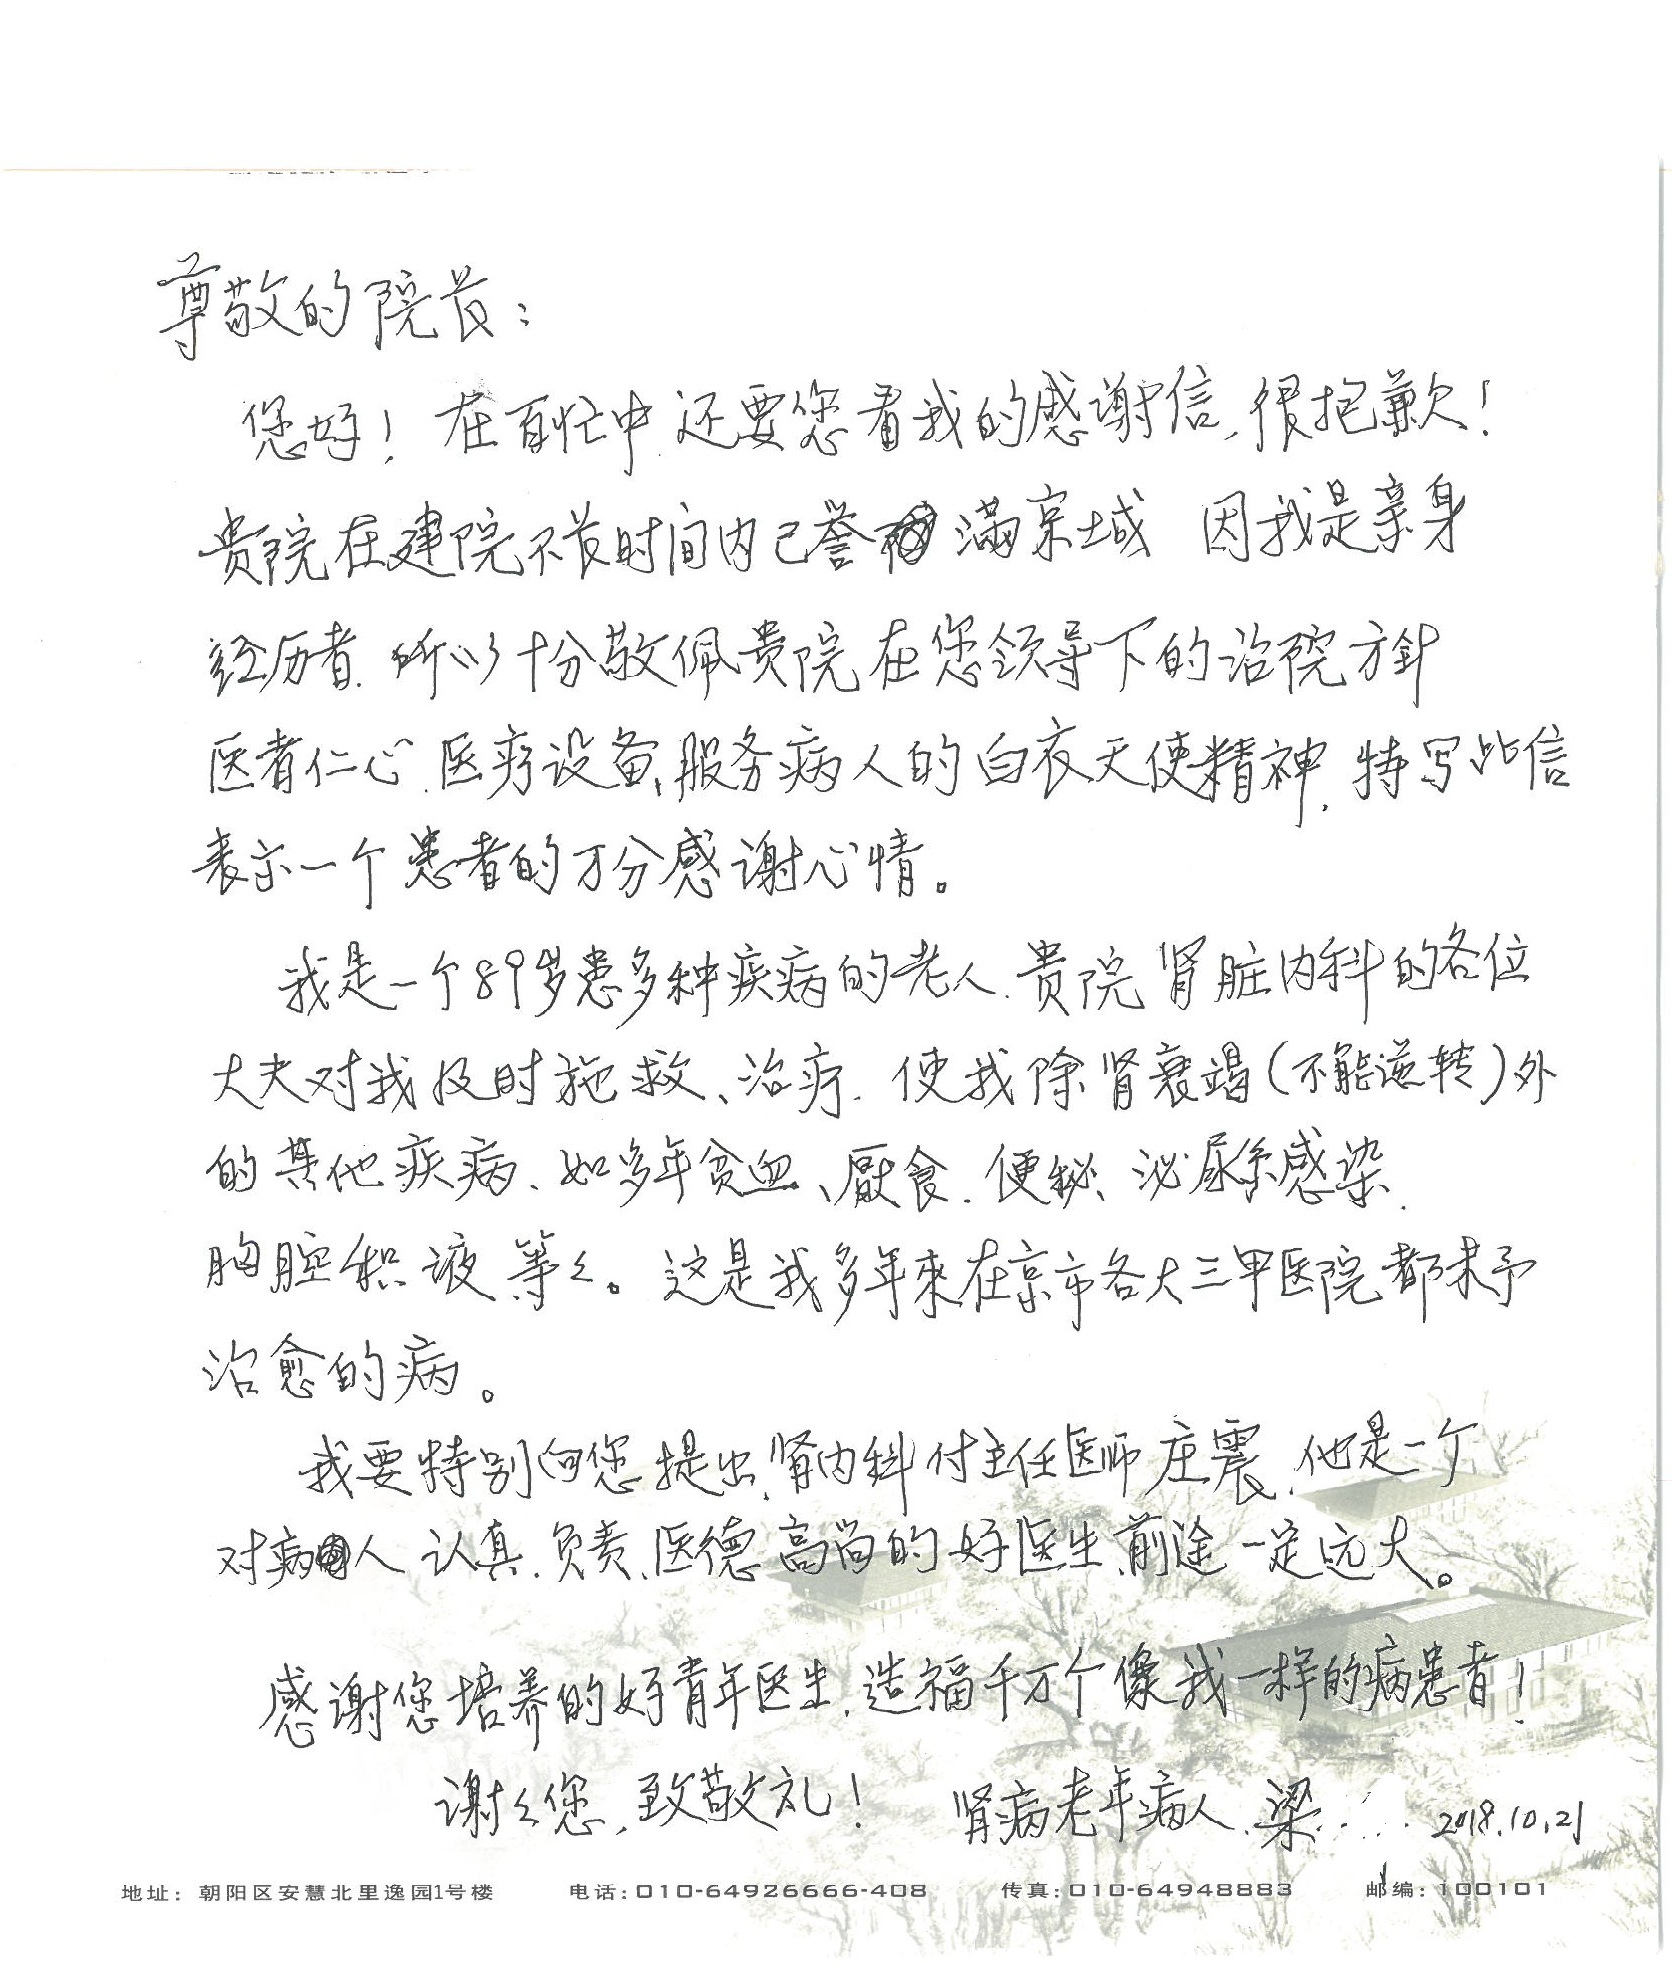 尊敬的院长：
您好！在百忙中还要您看我的感谢信，很抱歉！
贵院在建院不长时间内已誉满京城 因我是亲身
经历者.所以十分敬佩贵院在您领导下的治院方針
医者仁心.医疗设备、服务病人的白衣天使精神.特写此信
表示一个患者的万分感谢心情。
我是一个89岁患多种疾病的老人.贵院肾脏内科的各位
大夫对我及时施救、治疗.使我除肾衰竭(不能逆转)外
的其他疾病、如多年贫血、厭食.便秘、泌尿系感染.
胸腔积液等々。这是我多年來在京市各大三甲医院都未予
治愈的病。
我要特别向您提出.肾内科付主任医师庄震.他是一个
对病人认真.负责.医德高尚的好医生.前途一定远大。
感谢您培养的好青年医生.造福千万个像我一样的病患者！
谢々您.致敬礼！ 肾病老年病人.梁..... 2018.10.21
地址：朝阳区安慧北里逸园1号楼 电话：010-64926666-408 传真：010-64948883 邮编：100101